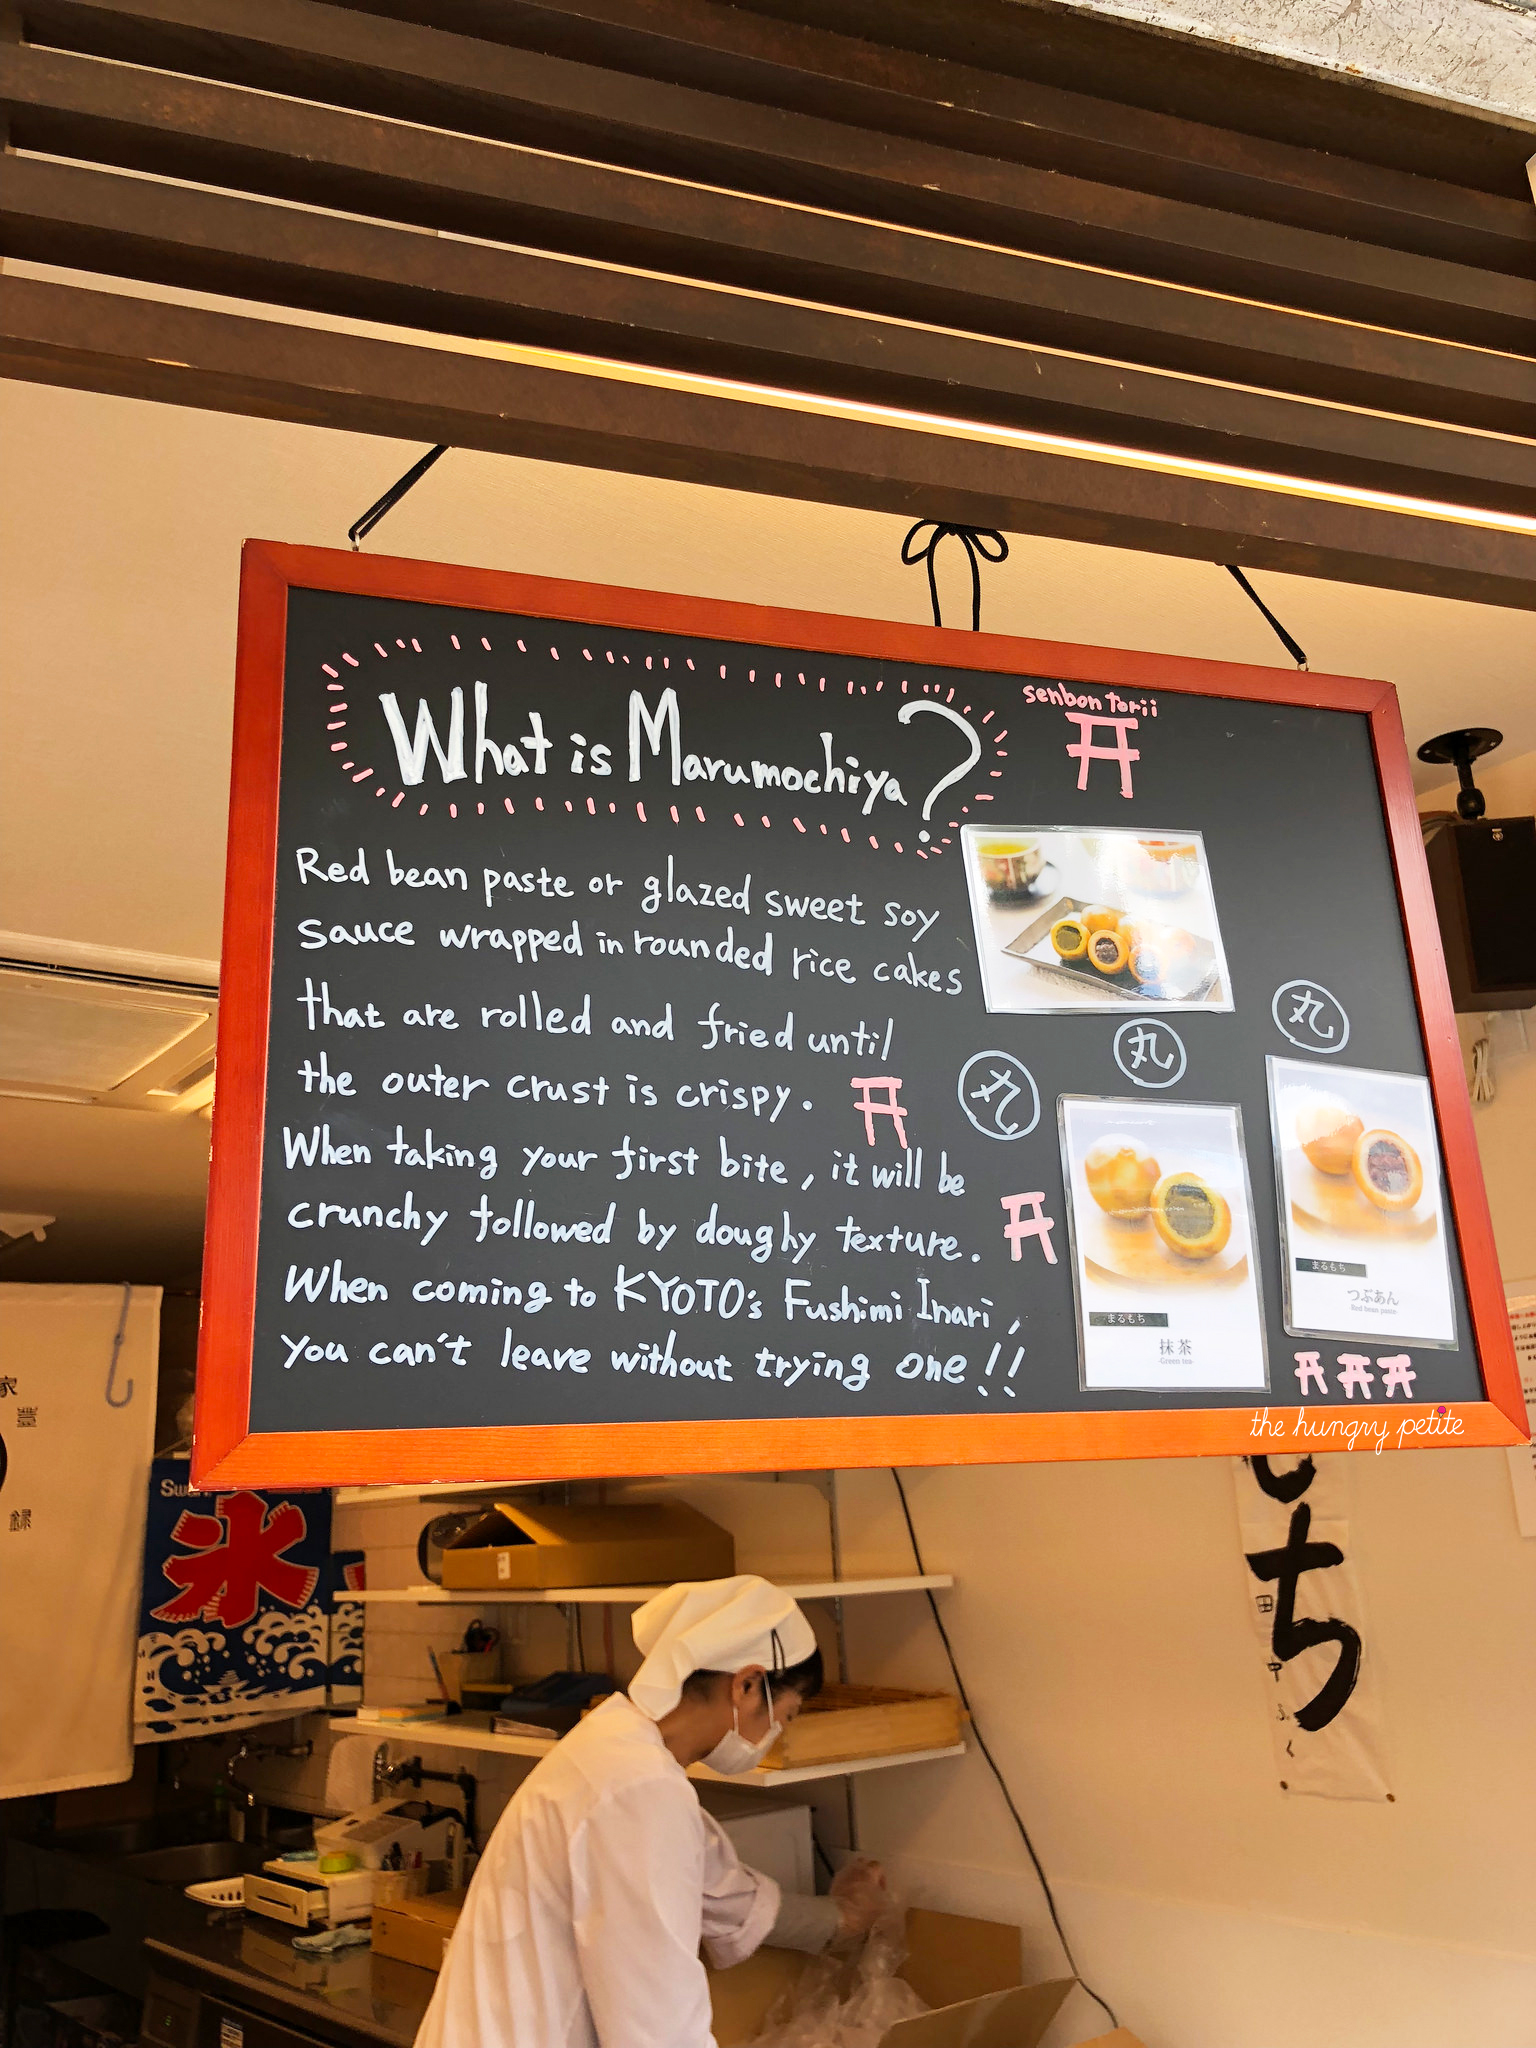 What is Marumochiya?
senbon torii
Red bean paste or glazed sweet soy
sauce wrapped in rounded rice cakes
that are rolled and fried until
the outer crust is crispy.
When taking your first bite, it will be
crunchy followed by doughy texture.
When coming to KYOTO's Fushimi Inari,
you can't leave without trying one!!
丸
丸
丸
まるもち
抹茶
-Green tea-
まるもち
つぶあん
Red bean paste
the hungry petite
家
氷
もち